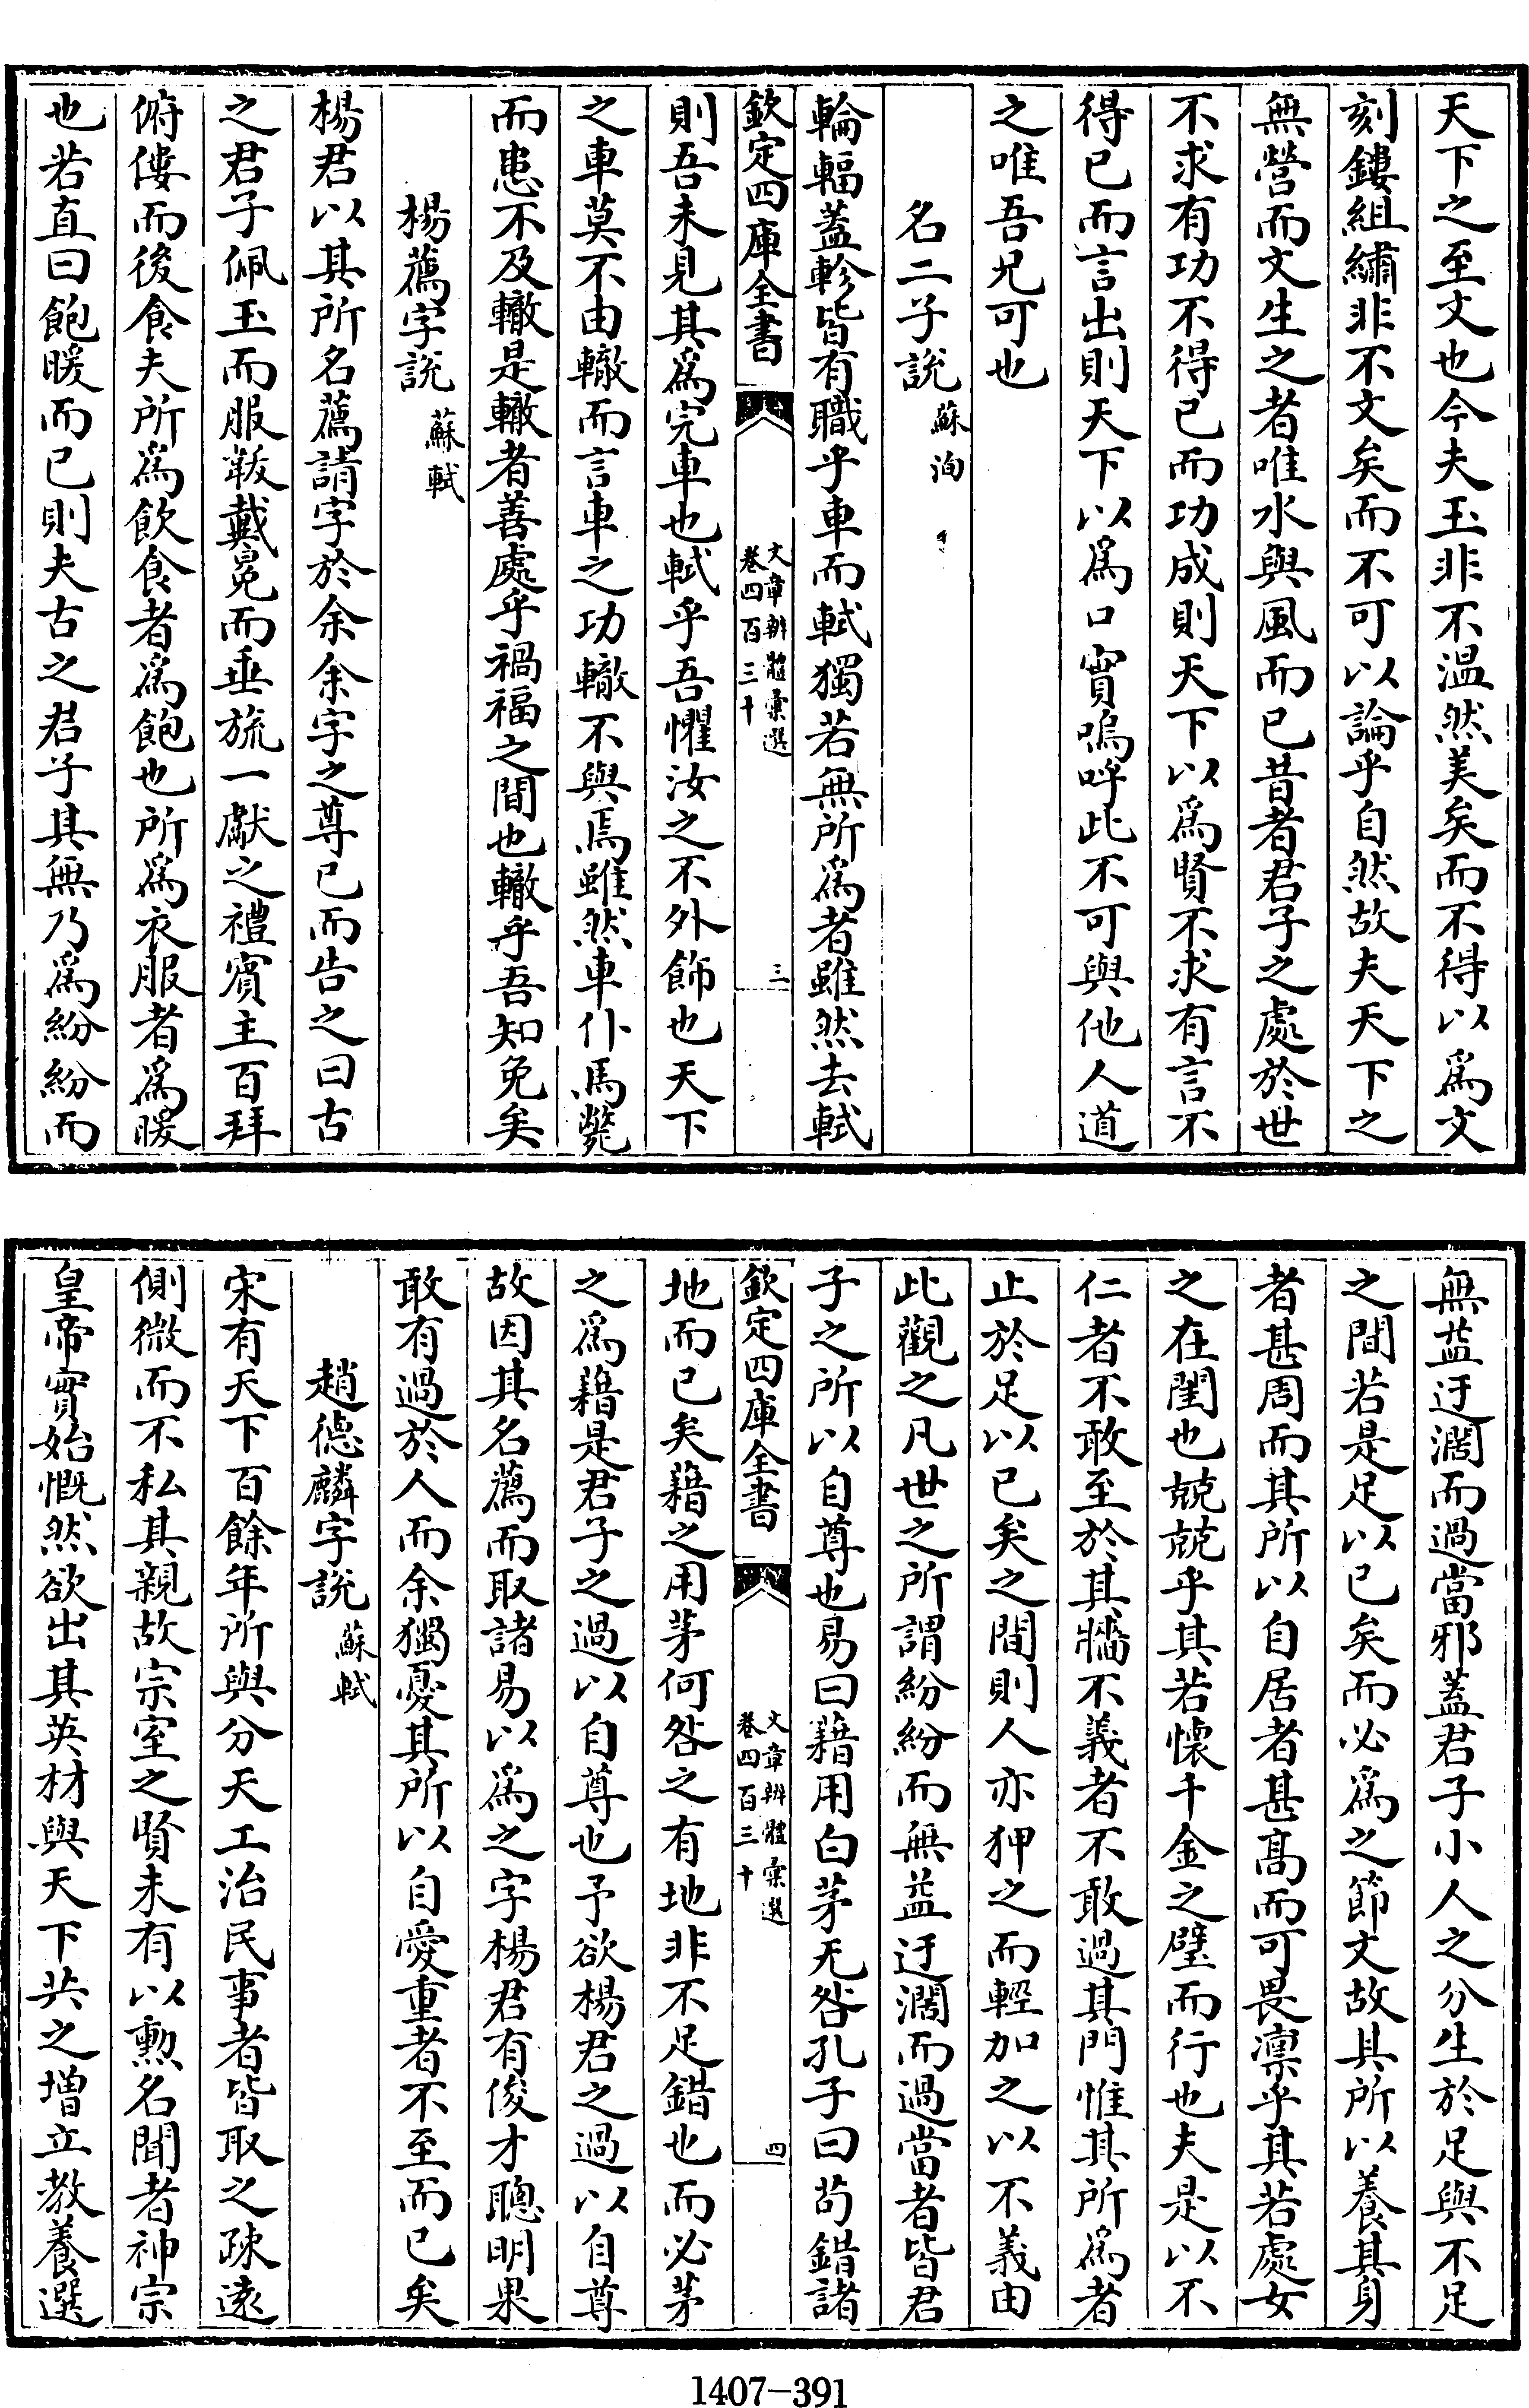 天下之至文也今夫玉非不温然美矣而不得以為文
刻鏤組繡非不文矣而不可以論乎自然故夫天下之
無營而文生之者唯水與風而已昔者君子之處於世
不求有功不得已而功成則天下以為賢不求有言不
得已而言出則天下以為口實嗚呼此不可與他人道
之唯吾兄可也
名二子說 蘇洵
輪輻蓋軫皆有職乎車而軾獨若無所為者雖然去軾
欽定四庫全書 文章辨體彙選 卷四百三十 三
則吾未見其為完車也軾乎吾懼汝之不外飾也天下
之車莫不由轍而言車之功轍不與焉雖然車仆馬斃
而患不及轍是轍者善處乎禍福之間也轍乎吾知免矣
楊薦字說 蘇軾
楊君以其所名薦請字於余余字之尊已而告之曰古
之君子佩玉而服韍戴冕而垂旒一獻之禮賓主百拜
俯僂而後食夫所為飲食者為飽也所為衣服者為暖
也若直曰飽暖而已則夫古之君子其無乃為紛紛而
無益迂濶而過當邪蓋君子小人之分生於足與不足
之間若是足以已矣而必為之節文故其所以養其身
者甚周而其所以自居者甚髙而可畏凛乎其若處女
之在閨也兢兢乎其若懷千金之璧而行也夫是以不
仁者不敢至於其牆不義者不敢過其門惟其所為者
止於足以已矣之間則人亦狎之而輕加之以不義由
此觀之凡世之所謂紛紛而無益迂濶而過當者皆君
子之所以自尊也易曰藉用白茅无咎孔子曰苟錯諸
欽定四庫全書 文章辨體彙選 卷四百三十 四
地而已矣藉之用茅何咎之有地非不足錯也而必茅
之為藉是君子之過以自尊也予欲楊君之過以自尊
故因其名薦而取諸易以為之字楊君有俊才聰明果
敢有過於人而余獨憂其所以自愛重者不至而已矣
趙德麟字說 蘇軾
宋有天下百餘年所與分天工治民事者皆取之疎遠
側微而不私其親故宗室之賢未有以勲名聞者神宗
皇帝實始慨然欲出其英材與天下共之增立教養選
1407-391